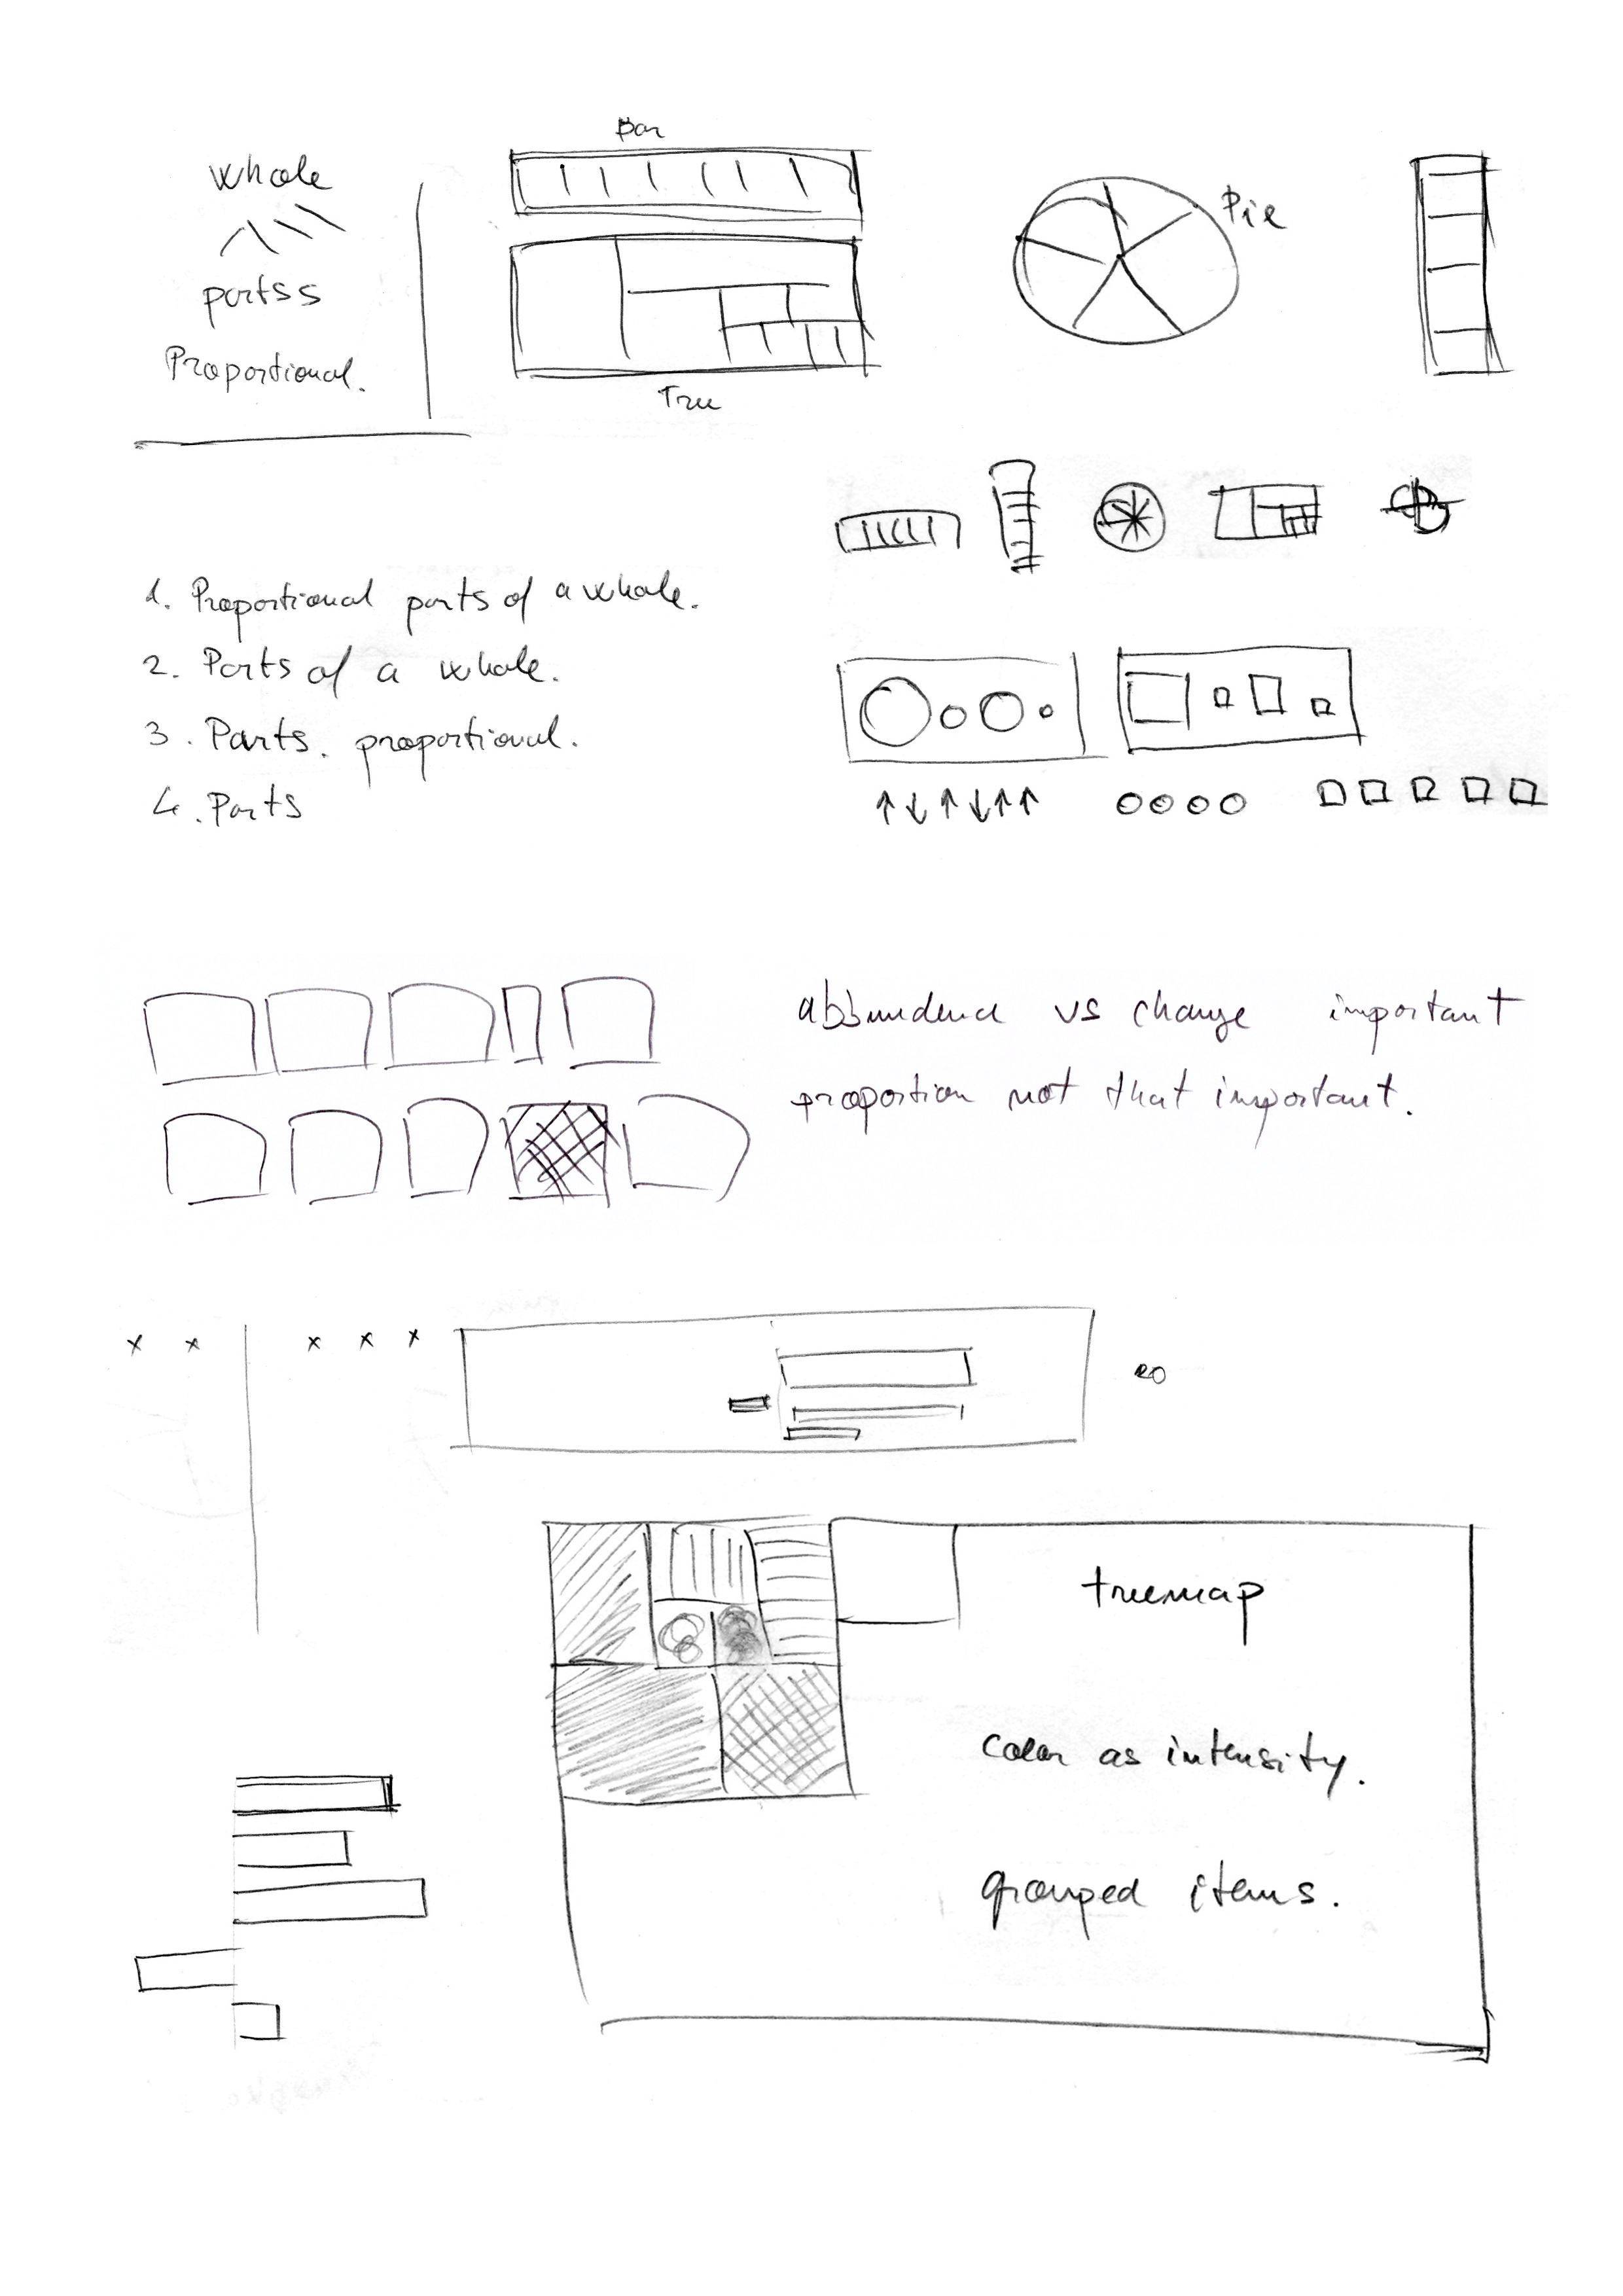 whole
Bar
Pie
partss
Proportional.
Tree
1. Proportional parts of a whole.
2. Parts of a whole.
3. Parts. proportional.
4. Parts
abbundence vs change important
proportion not that important.
x x x x x
treemap
color as intensity.
grouped items.